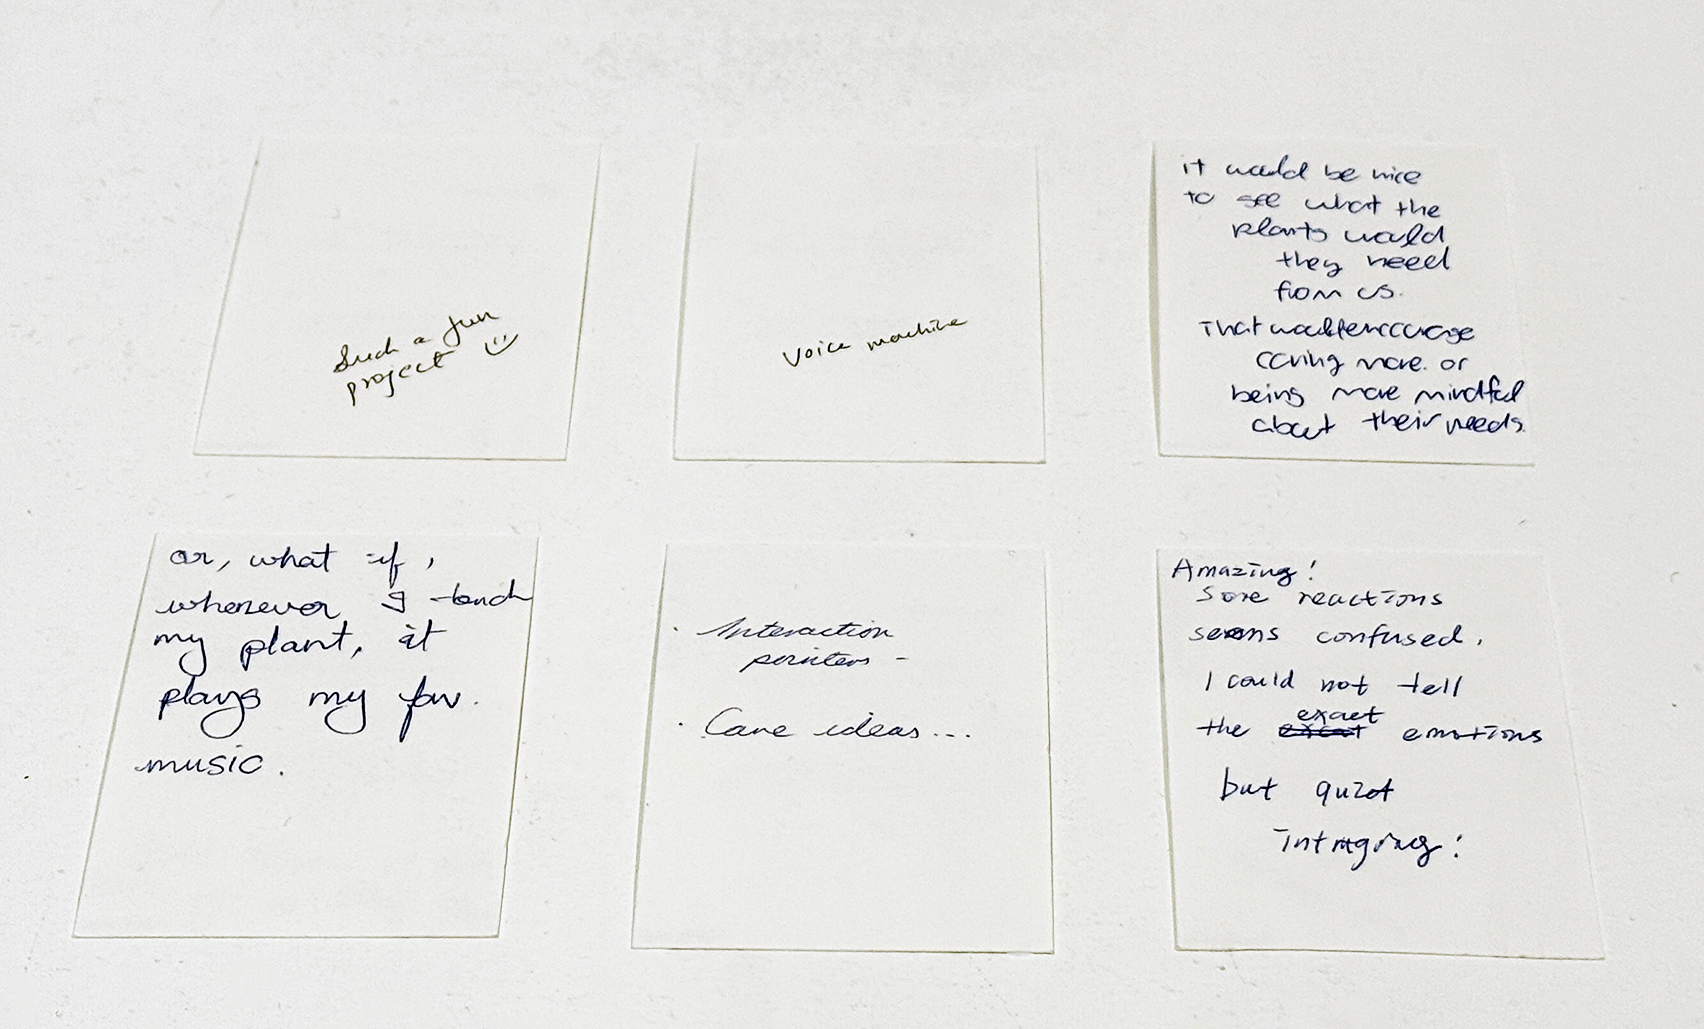 Such a fun
project
Voice machine
it would be nice
to see what the
plants would
they need
from us.
That would encourage
caring more. or
being more mindful
about their needs.
or, what if,
whenever I touch
my plant, it
plays my fav.
music.
· Interaction
pointers -
· Care ideas...
Amazing!
Some reactions
seems confused.
I could not tell
the exact emotions
but quiet